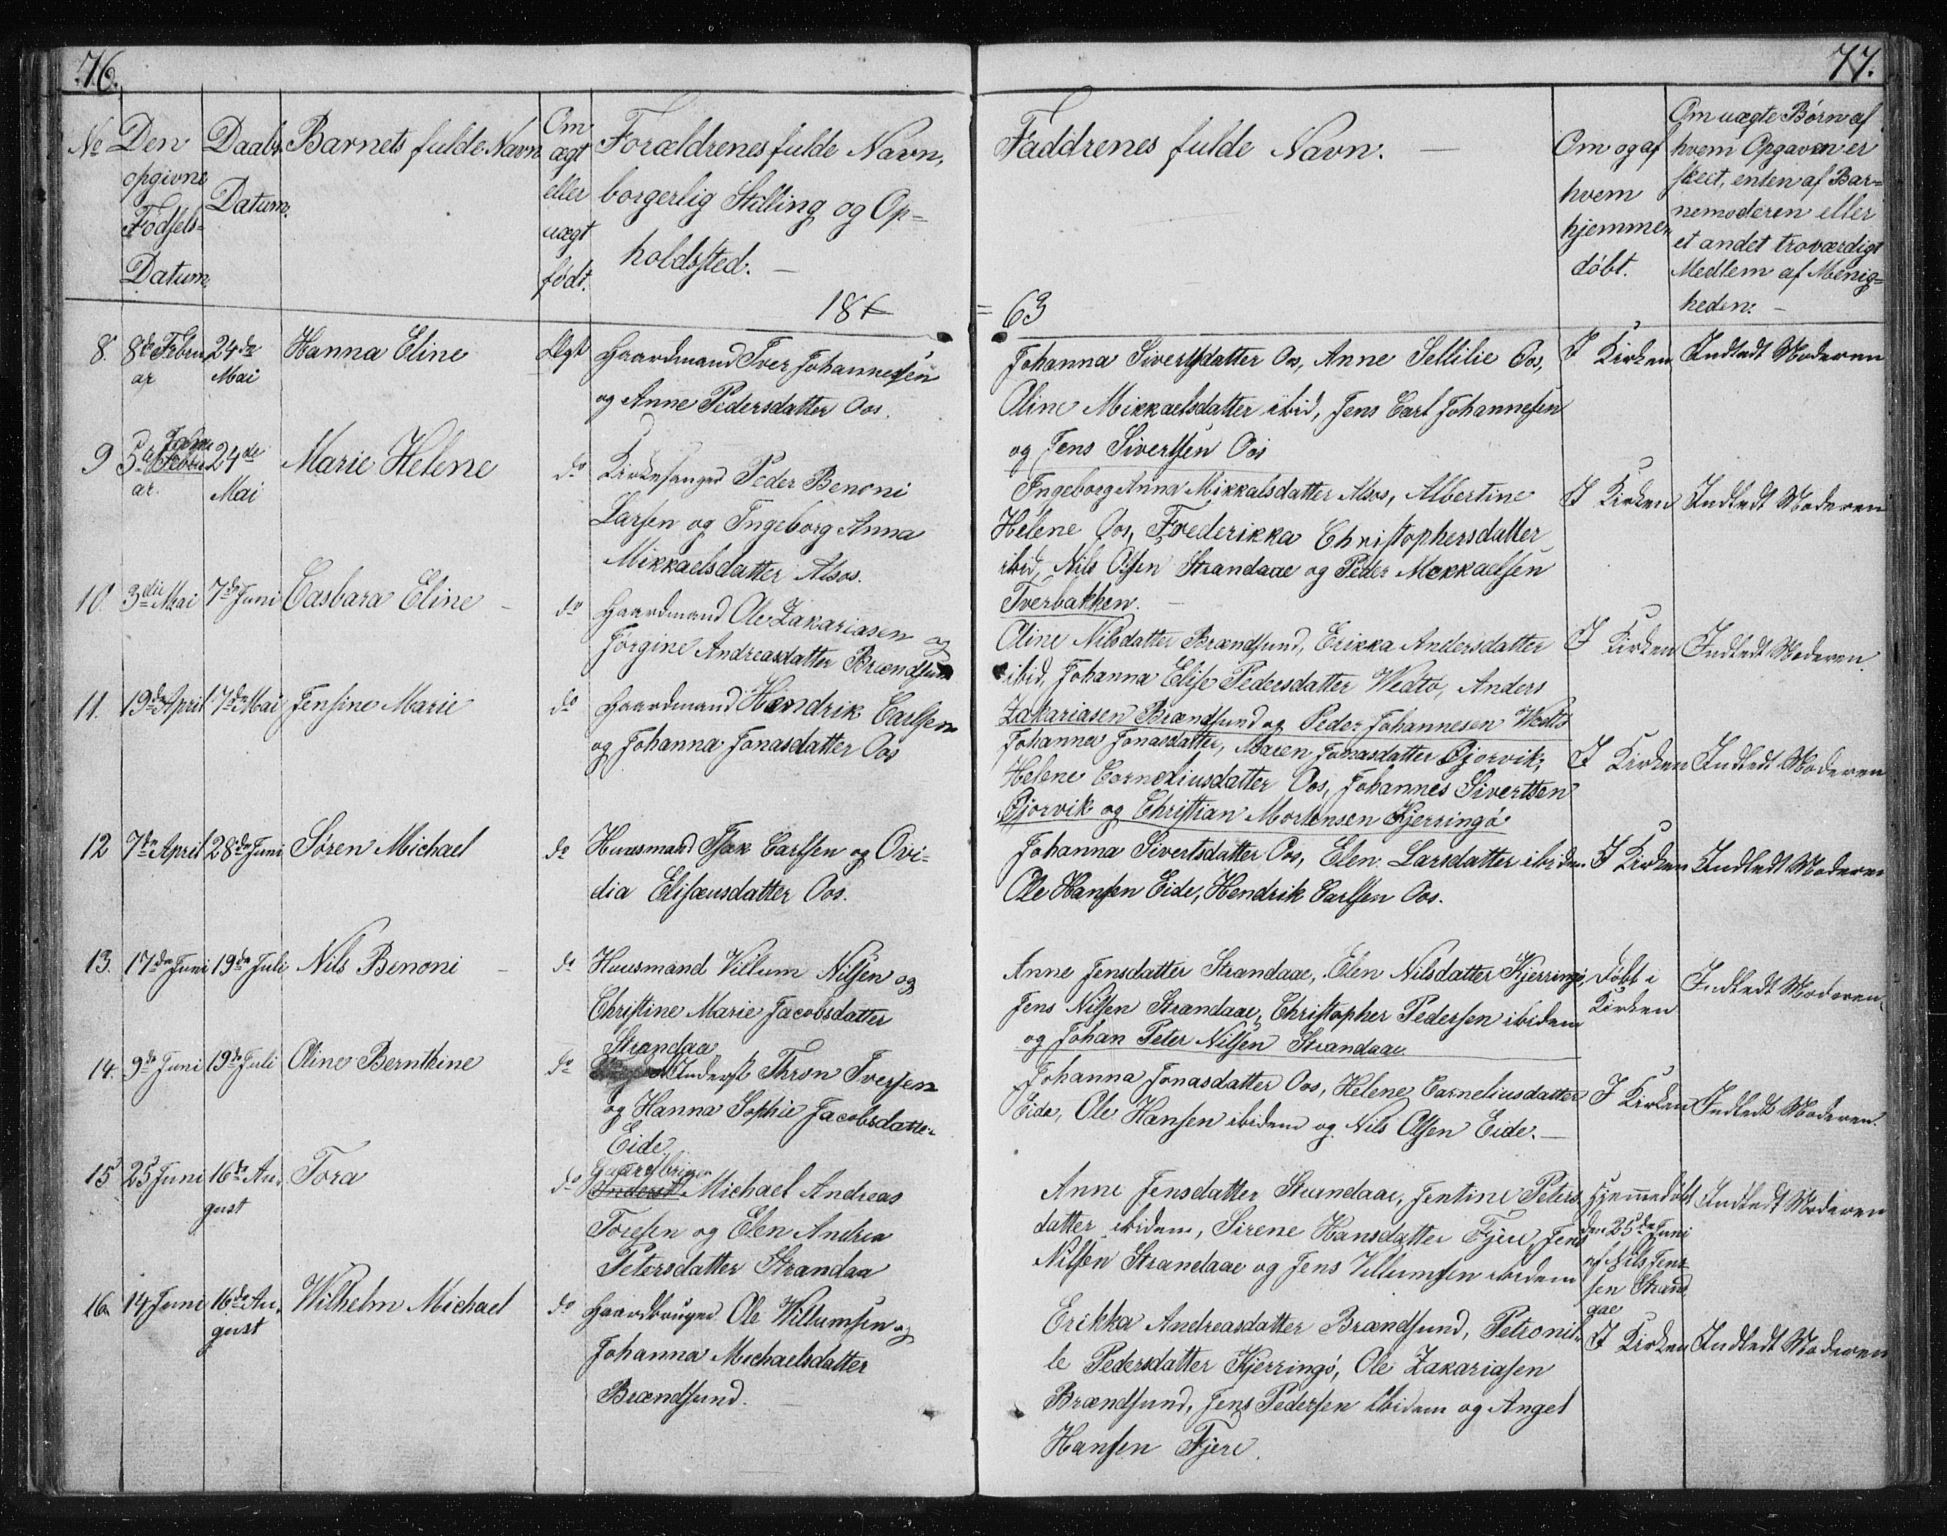 76.
77.
No Den opgivne Fødsels-Datum.
Daabs Datum.
Barnets fulde Navn
Om ægt eller uægt født.
Forældrenes fulde Navn,
borgerlig Stilling og Op-
holdssted. —
Faddrenes fulde Navn. —
Om og af hvem hjemmedøbt.
Om uægte Børn af
hvem Opgaven er
skeet, enten af Bar-
nemoderen eller
et andet troværdigt
Medlem af Menig-
heden. —
18 = 63
8. 8de Februar 24de Mai Hanna Eline Ægt Gaardmand Iver Johannessen
og Anne Pedersdatter Oos.
Johanna Sivertsdatter Oos, Anne Sellilie Oos,
Oline Mikkaelsdatter ibid, Jens Carl Johannesen
og Jens Sivertsen Oos
I Kirken Indledt Moderen
9 5te Januar 24de Mai Marie Helene do Kirkesanger Peder Benoni
Larsen og Ingeborg Anna
Mikkaelsdatter Alsos.
Ingeborg Anna Mikkalsdatter Alsos, Albertine
Helene Oos, Frederikka Christophersdatter
ibid, Nils Olsen Strandaae og Peder Mekkaelsen
Tverbakken. —
I Kirken Indledt Moderen
10. 3die Mai 7de Juni Casbara Eline — do Gaardmand Ole Zakariasen og
Jørgine Andreasdatter Brændsund
Oline Nilsdatter Brændsund, Erikka Andersdatter
ibid, Johanna Elise Pedersdatter Wedtø, Anders
Zakariasen Brændsund og Peder Johannesen Wedtø
I Kirken Indledt Moderen.
11. 19de April 17de Mai Jensine Marie do Gaardmand Hendrik Carlsen
og Johanna Jonasdatter Oos
Johanna Jonasdatter, Maren Jonasdatter Øjorvik,
Helene Corneliusdatter Oos, Johannes Sivertsen
Øjorvik og Christian Mortensen Kjerringø
I Kirken Indledt Moderen
12 7de April 28de Juni Søren Michael do Huusmand Isak Carlsen og Ovi-
dia Elisæusdatter Oos.
Johanna Sivertsdatter Oos, Elen Larsdatter ibidem
Ole Hansen Eide, Hendrik Carlsen Oos.
I Kirken Indledt Moderen
13. 17de Juni 19de Juli Nils Benoni — do Huusmand Villum Nilsen og
Christine Marie Jacobsdatter
Strandaa
Anne Jensdatter Strandaae, Elen Nilsdatter Kjerringø,
Jens Nilsen Strandaae, Christopher Pedersen ibidem
og Johan Peter Nilsen Strandaae
døbt i Kirken Indledt Moderen.
14. 9de Juni 19de Juli Oline Bernthine do Inderst Thron Iversen
og Hanna Sophie Jacobsdatter
Eide
Johanna Jonasdatter Oos, Helene Corneliusdatter
Eide, Ole Hansen ibidem og Nils Olsen Eide. —
I Kirken Indledt Moderen.
15 25 Juni 16de August Tora do Gaardbruger Inderst Michael Andreas
Toresen og Elen Andrea
Petersdatter Strandaa
Anne Jensdatter Strandaae, Jentine Peters-
datter ibidem, Sirene Hansdatter Fjere, Jens
Nilsen Strandaae og Jens Villumsen ibidem
Hjemmedøbt
den 25de Juni
af Nils Jens-
sen Strand-
aae
Indledt Moderen
16. 14 Juni 16de August Wilhelm Michael do Gaardbruger Ole Willumsen og
Johanna Michaelsdatter
Brændsund. —
Erikka Andreasdatter Brændsund, Petronil-
le Pedersdatter Kjerringø, Ole Zakariasen
Brændsund, Jens Pedersen ibidem og Angel
Hansen Fjere.
I Kirken Indledt Moderen